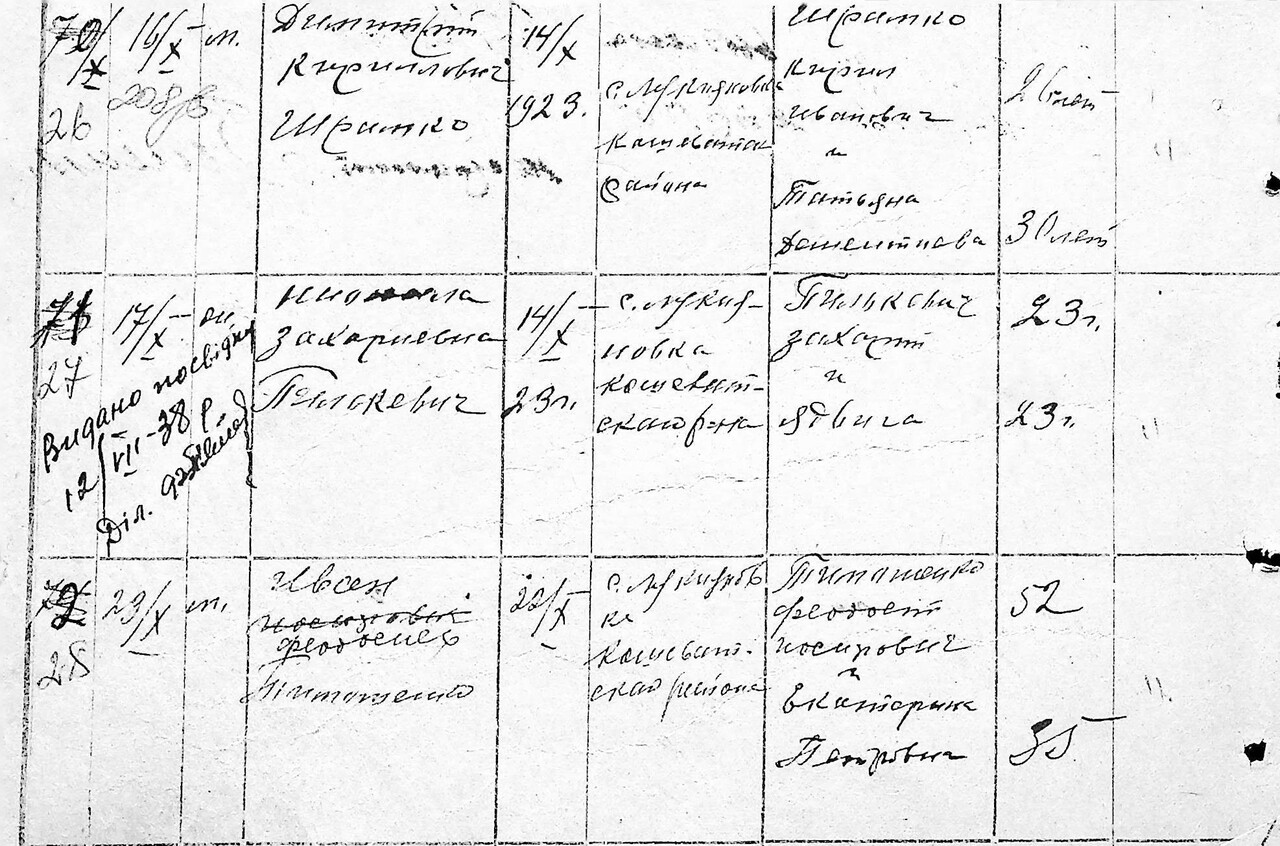 70/X
26
16/X
208/б
м.
Димитрий
Кирилович
Шрамко
14/X
1923.
с. Лукияновка
Кошеватск
района
Шрамко
Кирил
Иванович
и
Татьяна
Дементиова
26 лет
30 лет
"
71
27
17/X
Видано посвідку
12/VII-38 р
Діл.
Захариевна
Пилькевич
14/X
23 г.
с. Лукия-
новка
Кошеват-
ского р-на
Пилькевич
Захар
и
Ядвига
23 г.
23 г.
"
72
28
23/X
м.
Ивсен
Иосипович
Феодосиев
Тимошенко
22/X
с. Лукиянов
ка
Кошеват-
ского района
Тимошенко
Феодосий
Иосипович
и
Екатерина
Петровна
52
35
"